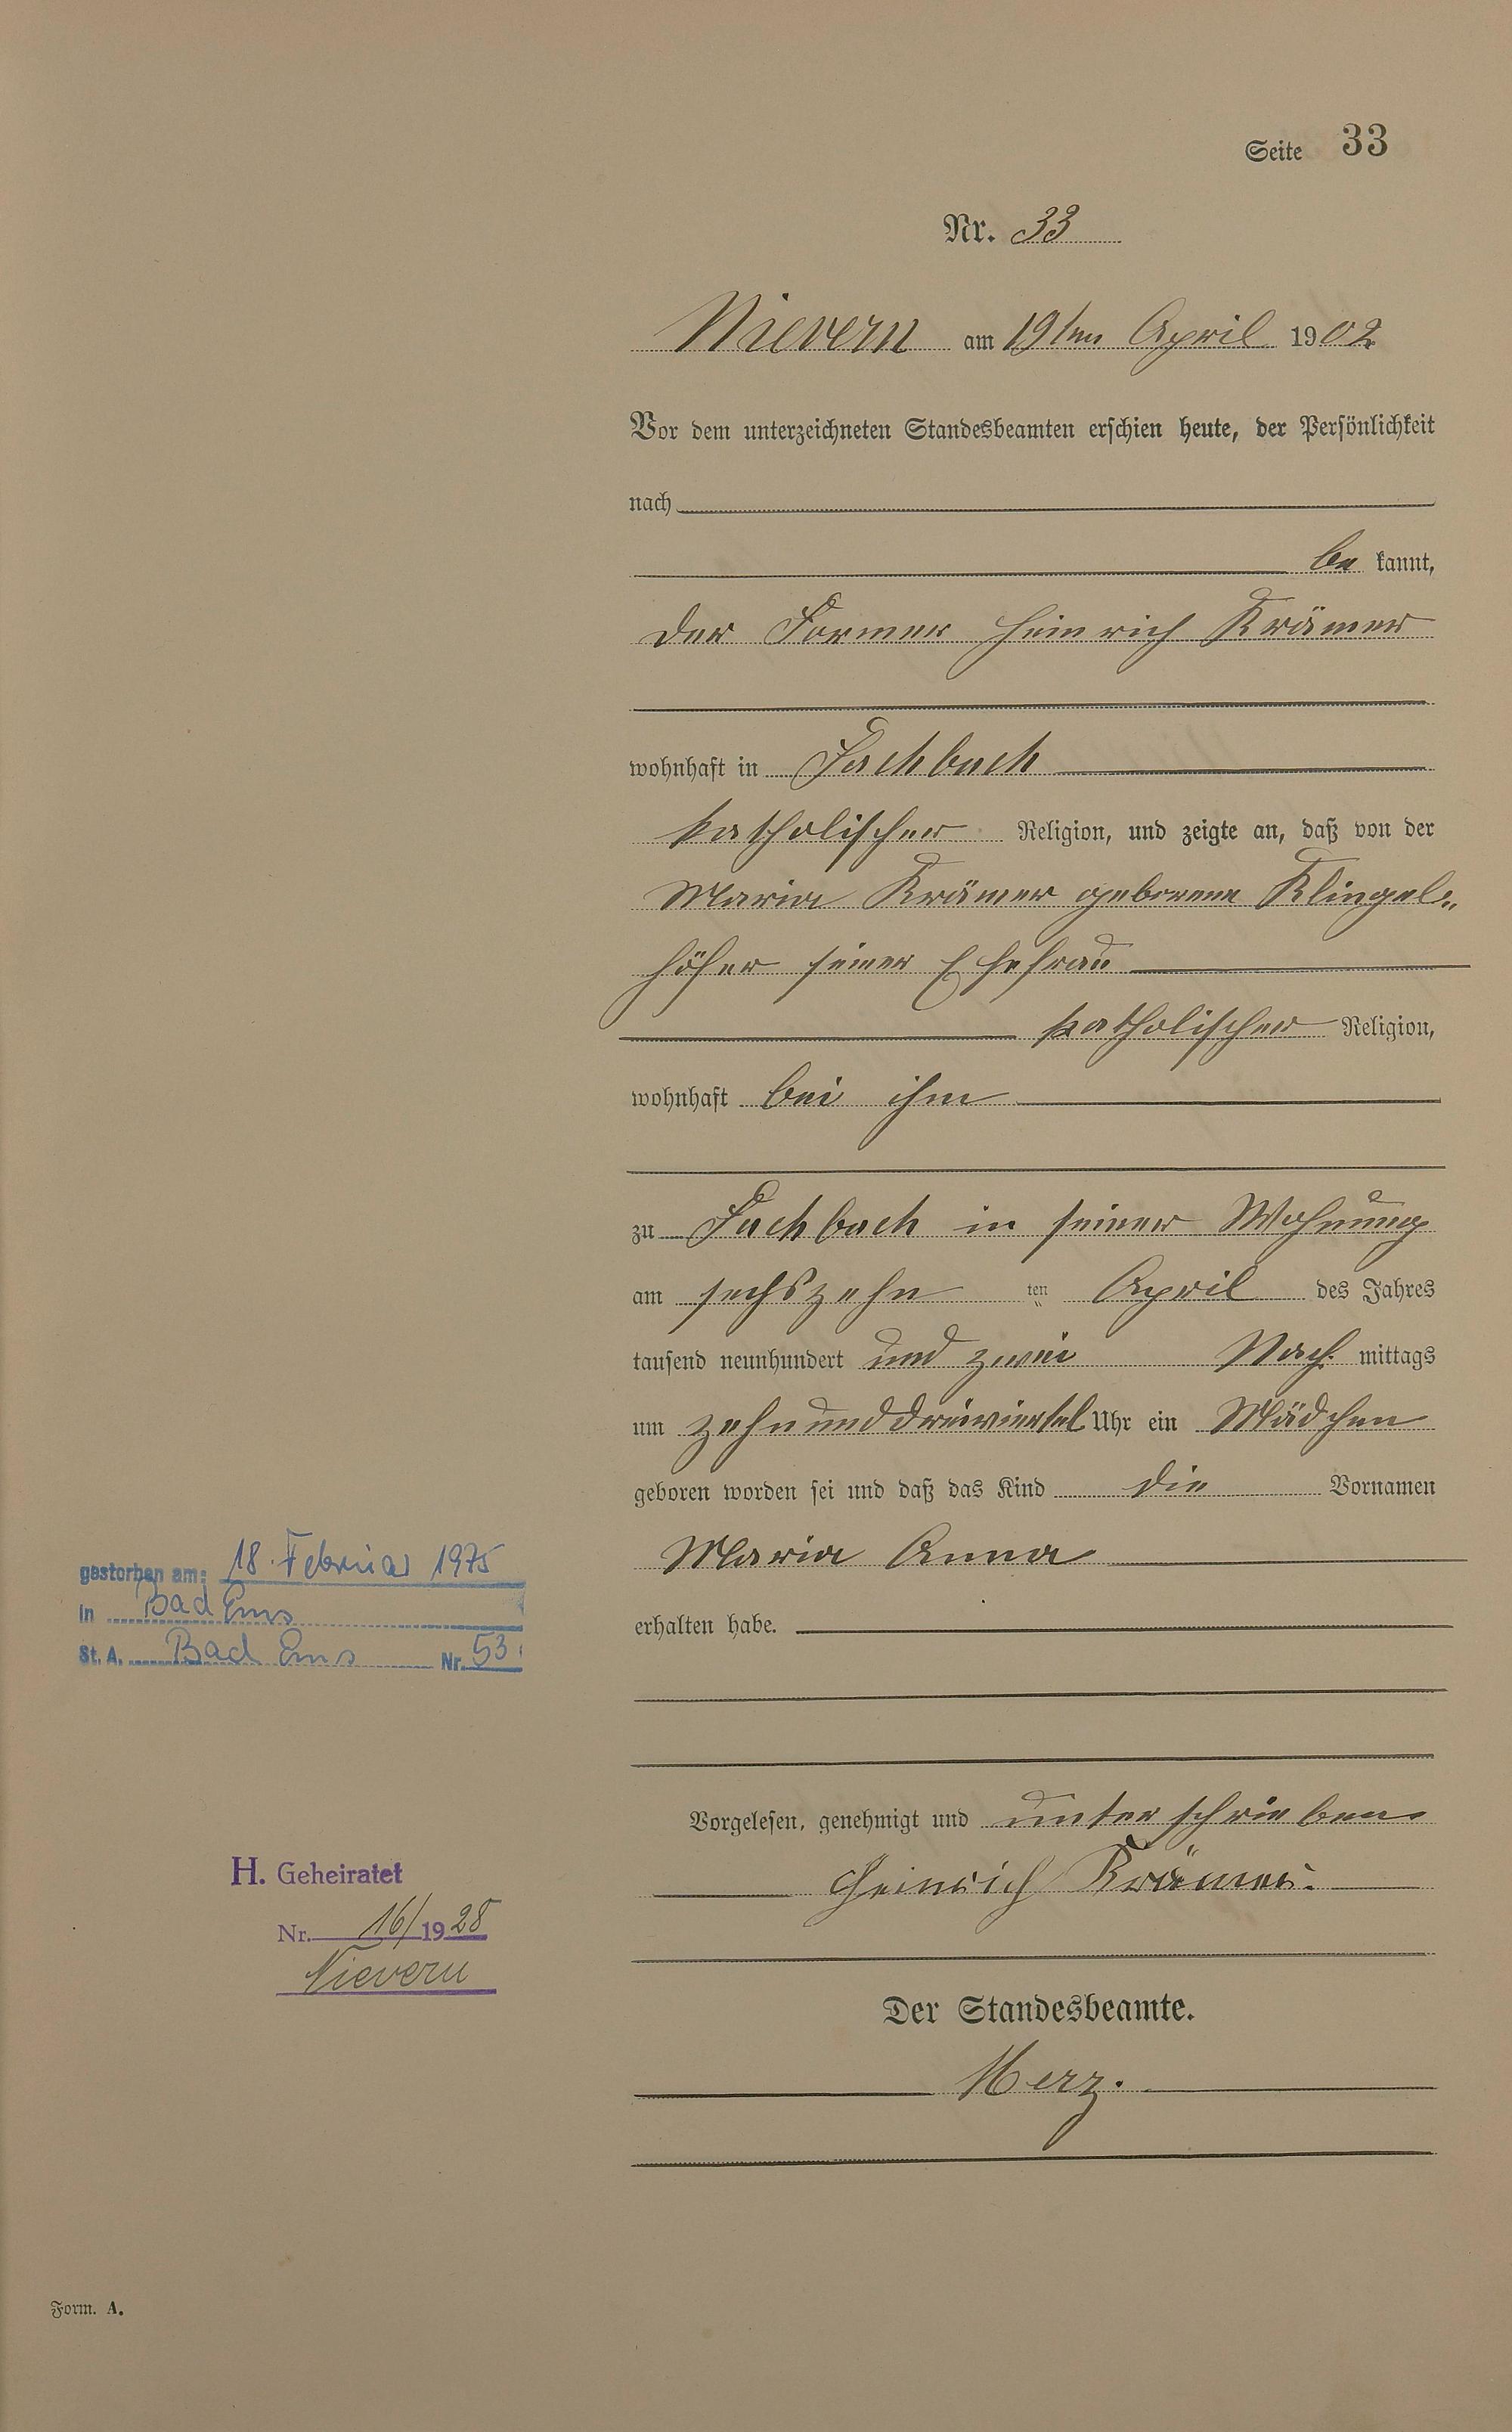 Seite 33
Nr. 33
Nievern am 19ten April 1902
Vor dem unterzeichneten Standesbeamten erschien heute, der Persönlichkeit
nach
be kannt,
der Former Heinrich Krämer
wohnhaft in Fachbach
katholischer Religion, und zeigte an, daß von der
Maria Krämer geborene Klingel-
höfer seiner Ehefrau
katholischer Religion,
wohnhaft bei ihm
zu Fachbach in seiner Wohnung
am sechszehn ten April des Jahres
tausend neunhundert und zwei Nach mittags
um zehnunddreiviertel Uhr ein Mädchen
geboren worden sei und daß das Kind die Vornamen
Maria Anna
erhalten habe.
Vorgelesen, genehmigt und unterschrieben.
Heinrich Krämer.
Der Standesbeamte.
Herz.
gestorben am: 18. Februar 1975
in Bad Ems
St. A. Bad Ems Nr. 53
H. Geheiratet
Nr. 16/1928
Nievern
Form. A.